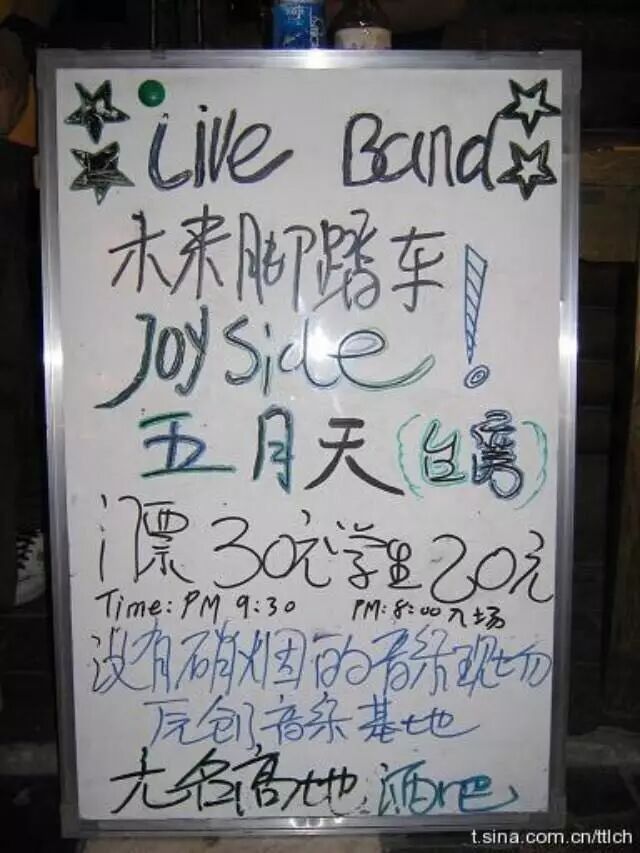 Live Band
未来脚踏车!
Joyside
五月天(台湾)
门票30元 学生20元
Time: PM 9:30 PM: 8:00入场
没有硝烟的音乐现场
原创音乐基地
无名高地 酒吧
t.sina.com.cn/ttlch